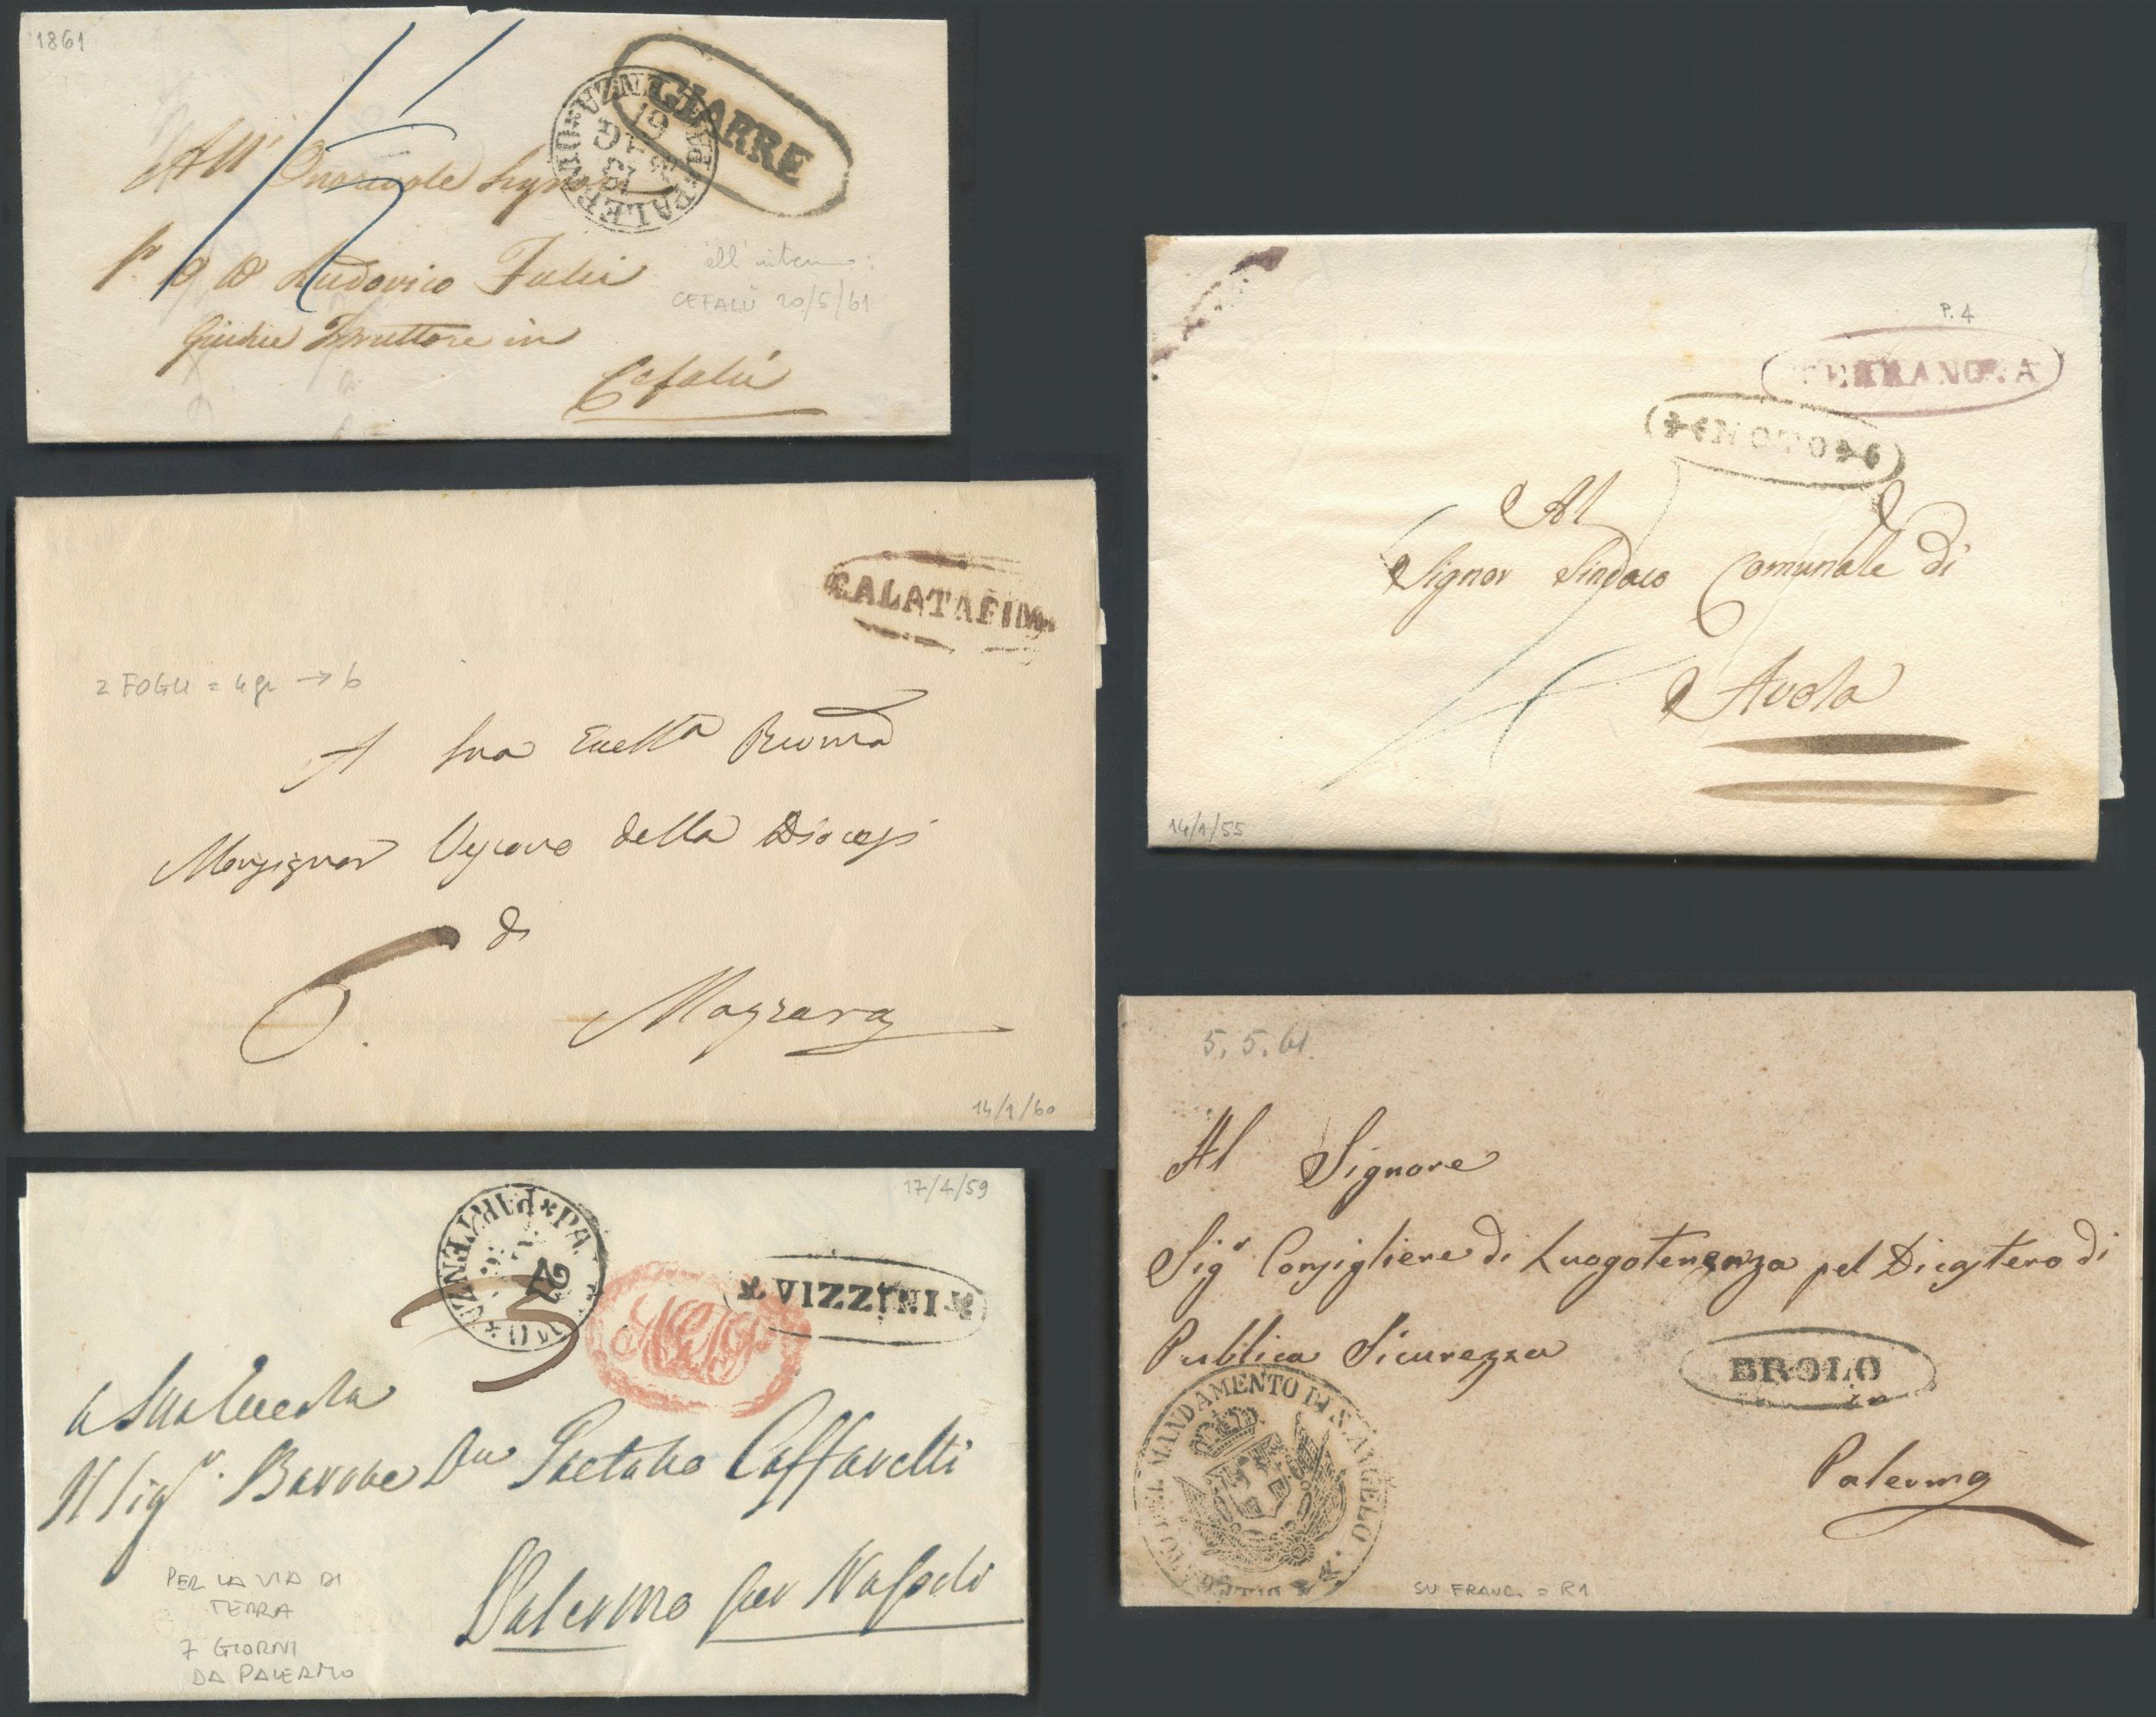 1861
GIARRE
PALERMO * PARTENZA
19
61
All' Onorevole Signor
Ludovico Fulci
Giudice Istruttore in
Cefalù
all' interno:
CEFALÙ 20/5/61
P. 4
TERRANOVA
NOTO
Al
Signor Sindaco Comunale di
Avola
14/1/55
CALATAFIMI
2 FOGLI = 4 gr → 6
A Sua Eccellza Revma
Monsignor Vescovo della Diocesi
di
6.
Mazzara
14/1/60
17/4/59
PA * PARTENZA
* INIZZIA *
3
a Sua Eccella
Il Sigr. Barone Dn Gaetano Caffarelli
Palermo per Napoli
PER LA VIA DI
TERRA
7 GIORNI
DA PALERMO
5. 5. 61.
Al Signore
Sigr Consigliere di Luogotenenza pel Dicastero di
Pubblica Sicurezza
BROLO
in
Palermo
MANDAMENTO DI S. ANGELO
SU FRANC. = R1